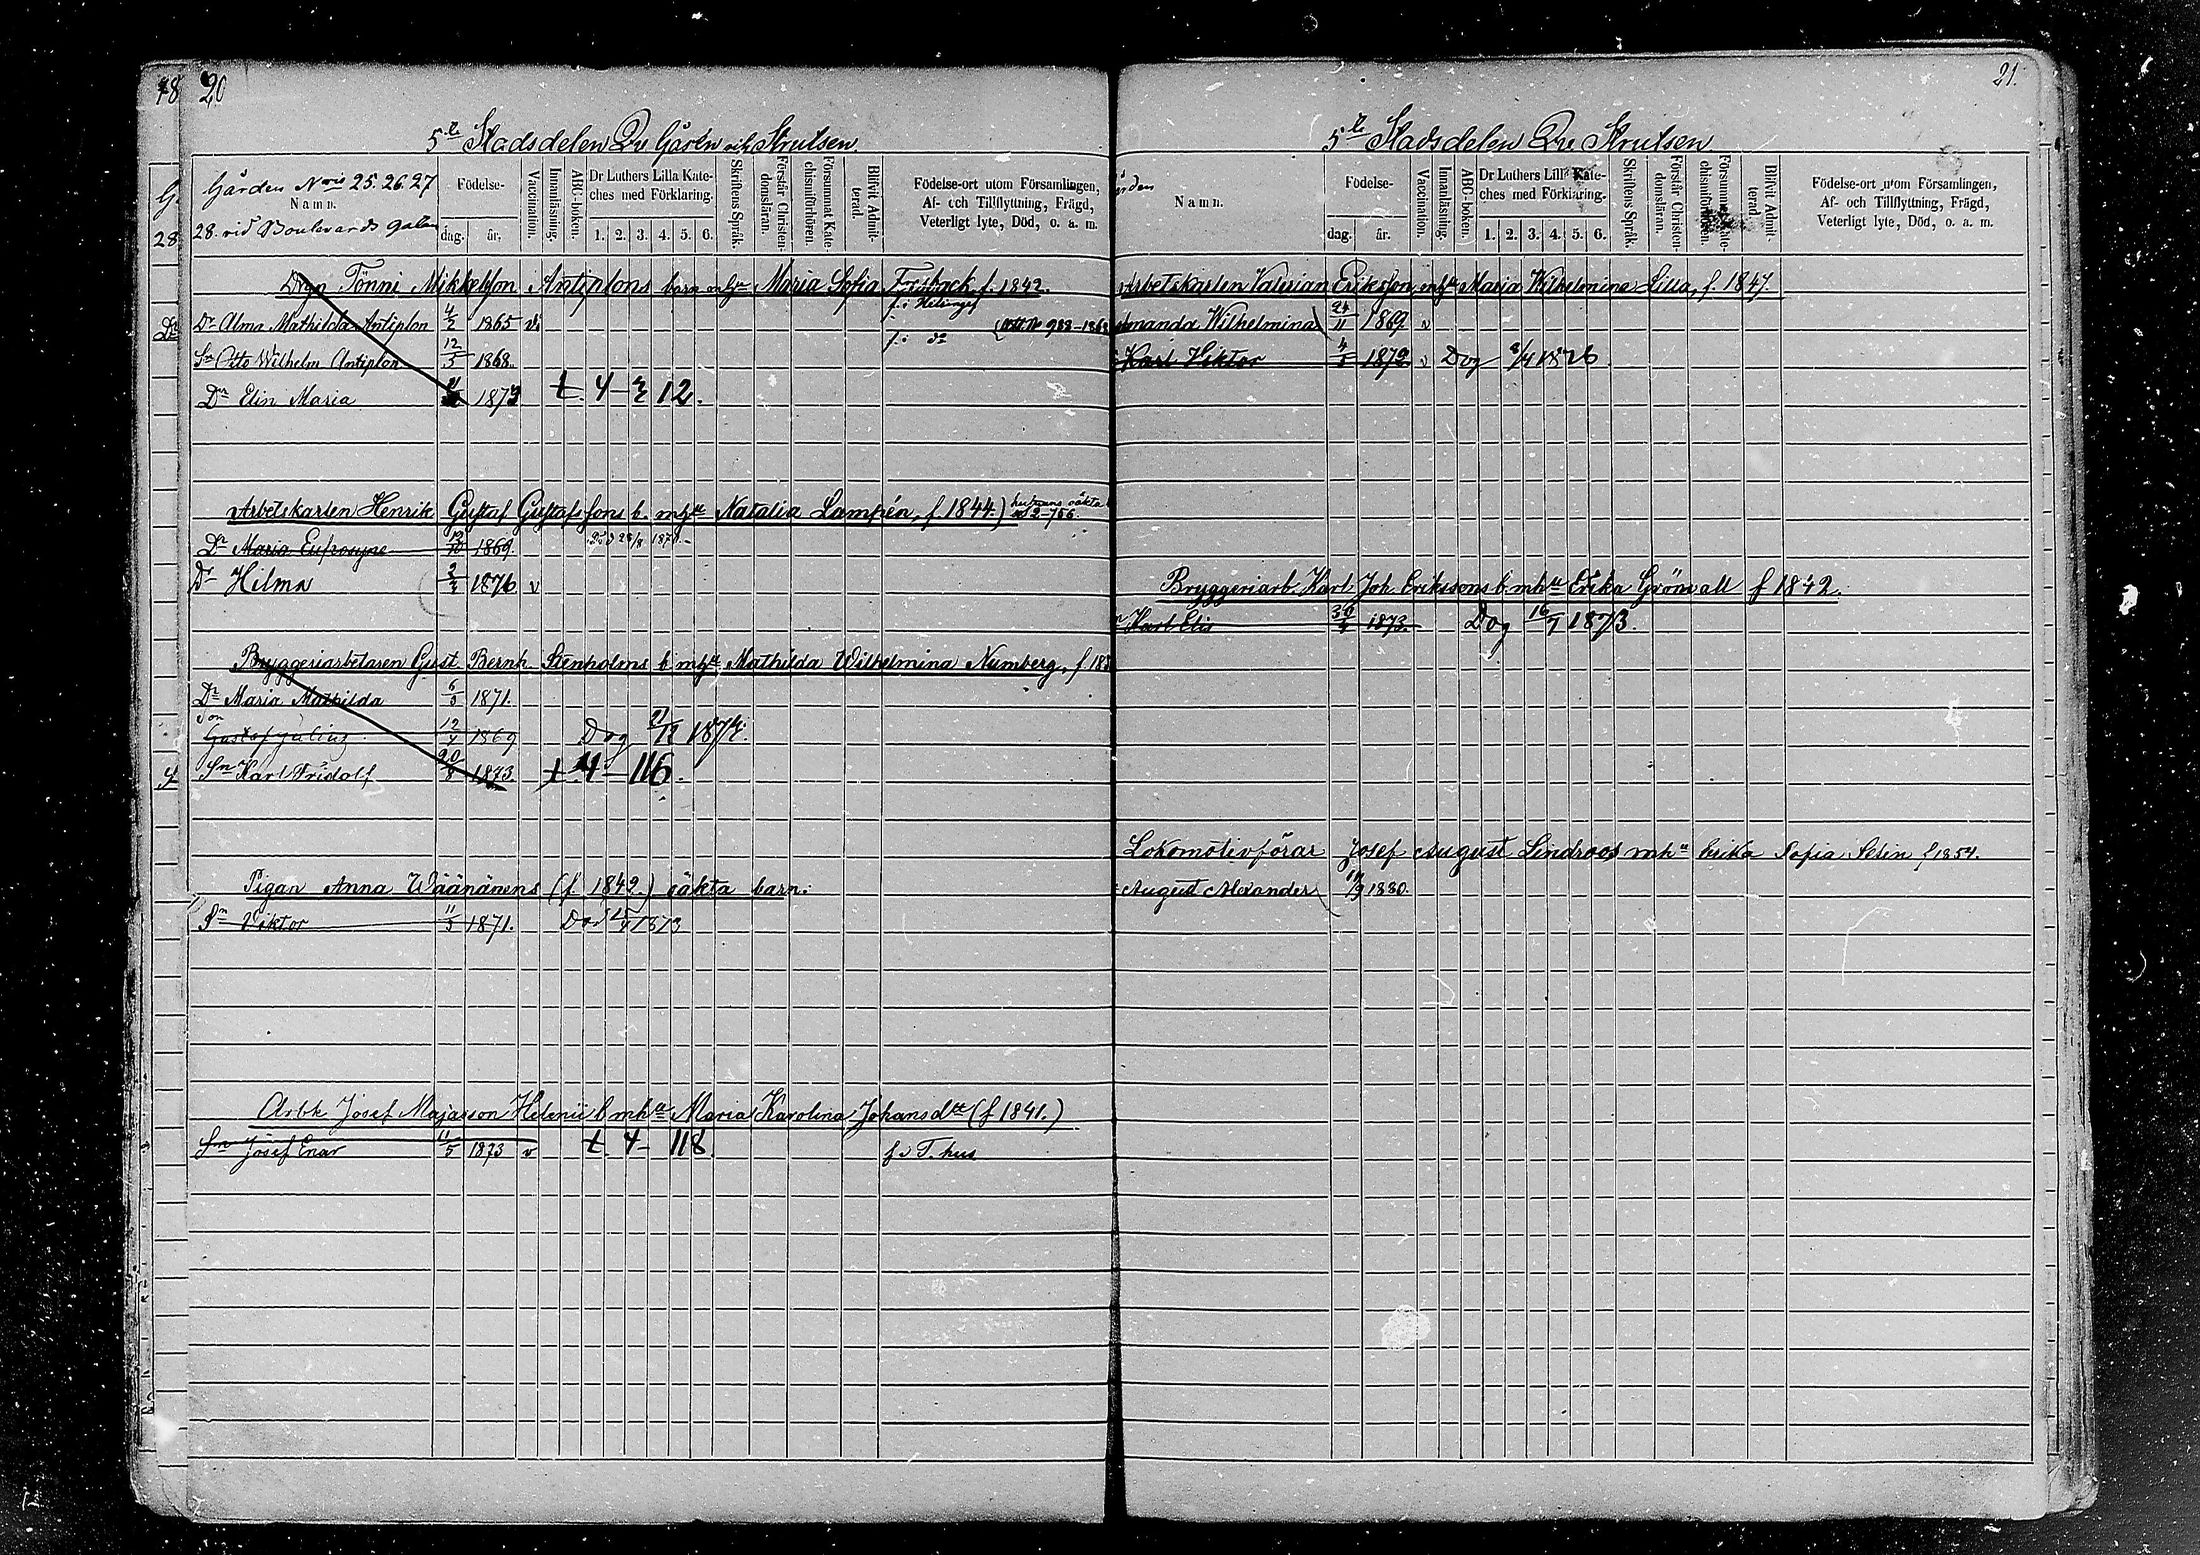 18 20
5te Stadsdelen Qv. Gåsen och Strutsen
Gården N:ris 25. 26. 27
Namn.
28. vid Boulevards gatan
Födelse-
dag. år.
Vaccination.
Innanläsning.
ABC-boken.
Dr Luthers Lilla Kate-
ches med Förklaring.
1. 2. 3. 4. 5. 6.
Skriftens Språk.
Förstår Christen-
domsläran.
Försummat Kate-
chismiförhören.
Blifvit Admit-
terad.
Födelse-ort utom Församlingen,
Af- och Tillflyttning, Frägd,
Veterligt lyte, Död, o. a. m.
G
28
Dr
Tönni Mikkelson Antiplons barn mhu Maria Sofia f. 1842.
Dr Alma Mathilda Antiplon 4/2 1865 v. f. i Helsingf
Sn Otto Wilhelm Antiplon 12/5 1868. f. i do
Dr Elin Maria 1873 t. 4 - 12.
Arbetskarlen Henrik Gustaf Gustafssons b. mhu Natalia Lampén, f. 1844.) hustruns oäkta
Dr Maria Eufrosyne 1869.
Dr Hilma 2/3 1876 v
Bryggeriarbetaren Gust. Bernh. Stenholms b mhu Mathilda Wilhelmina Numberg, f 18
Dr Maria Mathilda 6/5 1871.
Son
Gustaf Julius 12/4 1869 Dog 21/12 187
Sn Karl Fridolf 20/8 1873. t. 4 - 116.
Pigan Anna Wäänänens (f. 1842.) oäkta barn.
Sn Viktor 11/3 1871. Död 25/4 1873
Arbk Josef Majarson Helenii b mhu Maria Karolina Johansdtr (f 1841.)
Sn Josef Enar 11/5 1873 v t. 4 - 118 f. i T. hus
21.
5te Stadsdelen Qv. Strutsen
Namn.
Födelse-
dag. år.
Vaccination.
Innanläsning.
ABC-boken.
Dr Luthers Lilla Kate-
ches med Förklaring.
1. 2. 3. 4. 5. 6.
Skriftens Språk.
Förstår Christen-
domsläran.
Försummat Kate-
chismiförhören.
Blifvit Admit-
terad.
Födelse-ort utom Församlingen,
Af- och Tillflyttning, Frägd,
Veterligt lyte, Död, o. a. m.
Arbetskarlen Valerian Eriksson, mhu Maria Wilhelmina Lilia, f. 1847.
manda Wilhelmina 24/11 1869 v
Karl Viktor 4/5 1872 v Dog 8/4 1876.
Bryggeriarb. Karl Joh. Erikssons b. mhu Erika Grönvall f 1842.
Karl Elis 30/4 1873. Dog 16/7 1873.
Lokomotivförar Josef August Lindroos mhu Erika Sofia f 1854.
August Alexander 11/9 1880.